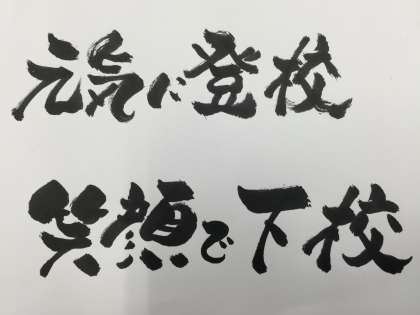 元気に登校
笑顔で下校